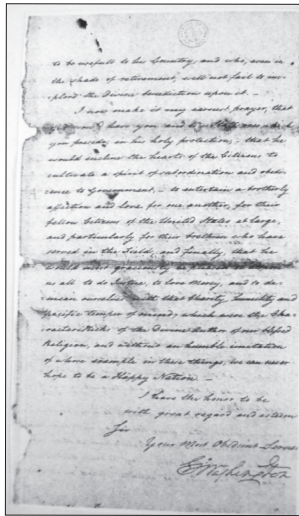 to be usefull to his Country, and who, even in
the shade of retirement, will not fail to im-
plore the divine benediction upon it. —
I now make it my earnest prayer, that
have you and the State over which
you preside, in his holy protection, that he
would incline the hearts of the Citizens to
cultivate a spirit of subordination and obedi-
ence to Government, to entertain a brotherly
affection and love for one another, for their
fellow Citizens of the United States at large,
and particularly for their brethren who have
served in the Field, and finally, that he
would most graciously be
us all to do Justice, to love Mercy, and to de-
mean ourselves with that Charity, humility and
pacific temper of mind, which were the Cha-
racteristicks of the Divine Author of our blessed
Religion, and without an humble imitation
of whose example in these things, we can never
hope to be a Happy Nation —
I have the honor to be
with great regard and esteem
Sir
Your Most Obedient
G Washington